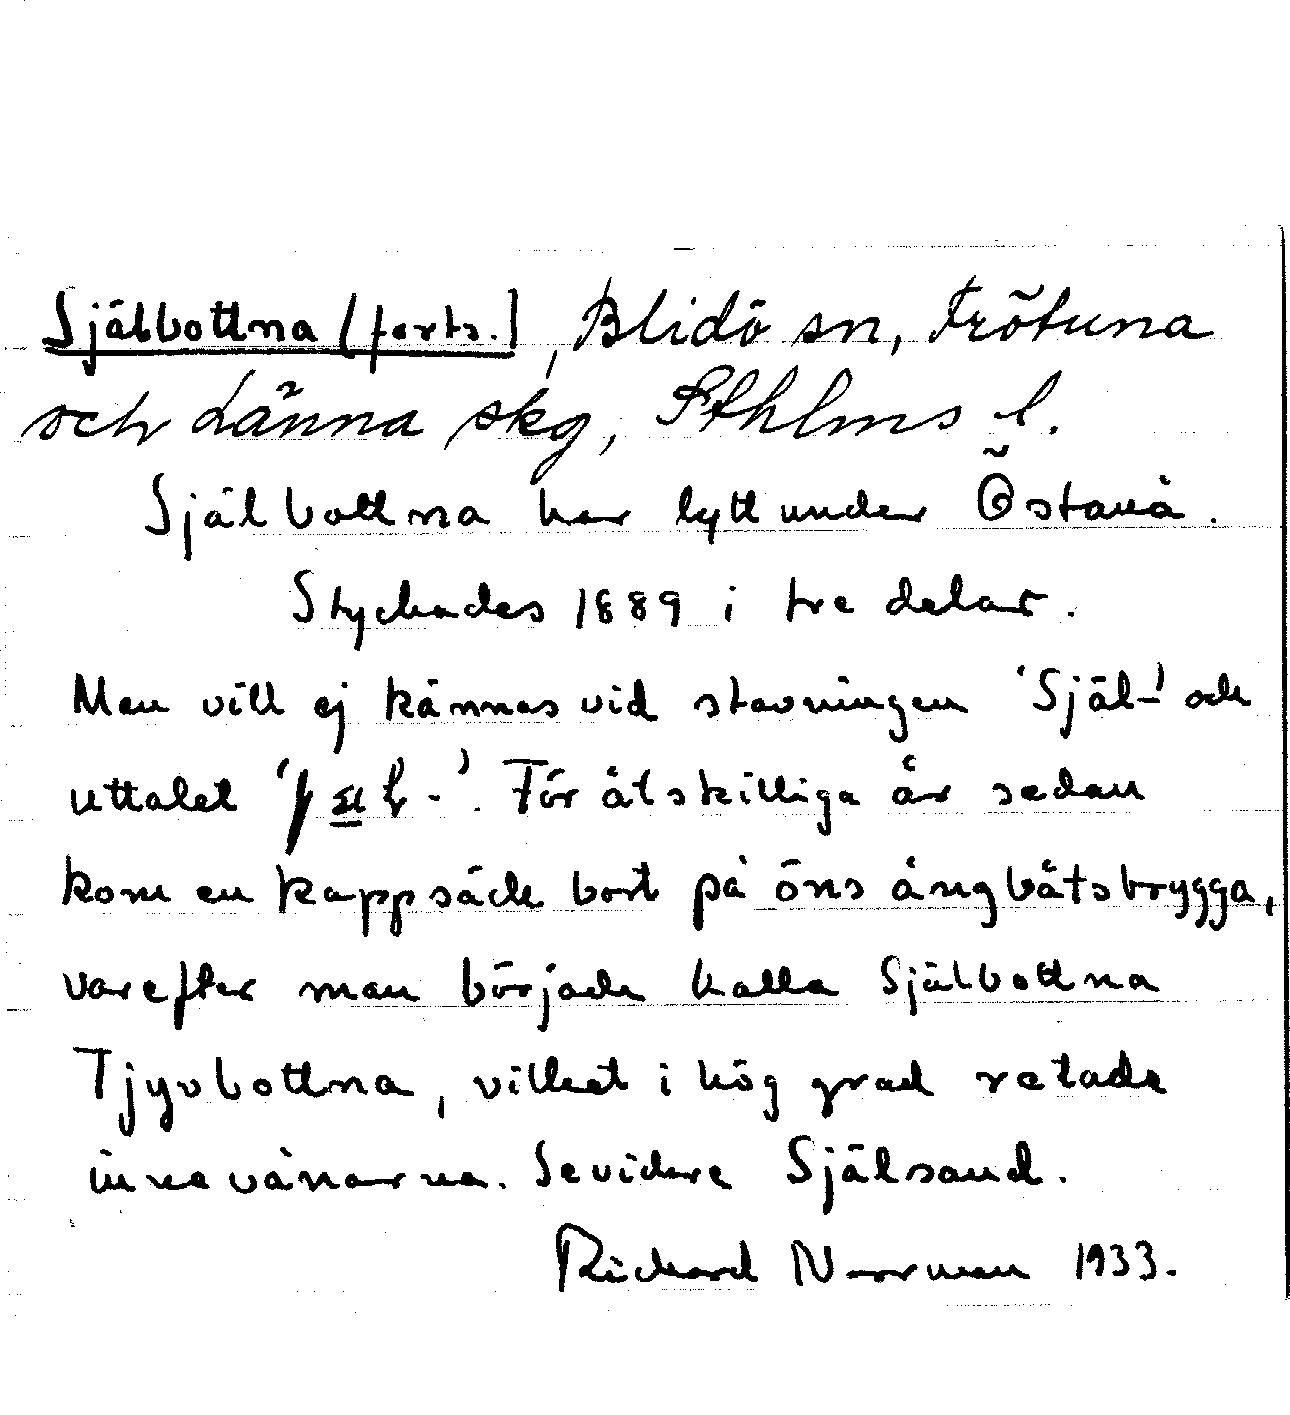 Själbottna (forts.), Blidö sn, Frötuna
och Länna skg, Sthlms l.
Själbottna har lytt under Östanå.
Styckades 1889 i tre delar.
Man vill ej kännas vid stavningen 'Själ-' och
uttalet '-'. För åtskilliga år sedan
kom en kappsäck bort på öns ångbåtsbrygga,
varefter man började kalla Själbottna
Tjyvbottna, vilket i hög grad retade
innevånarna. Se vidare Själsand.
Richard Norrman 1933.